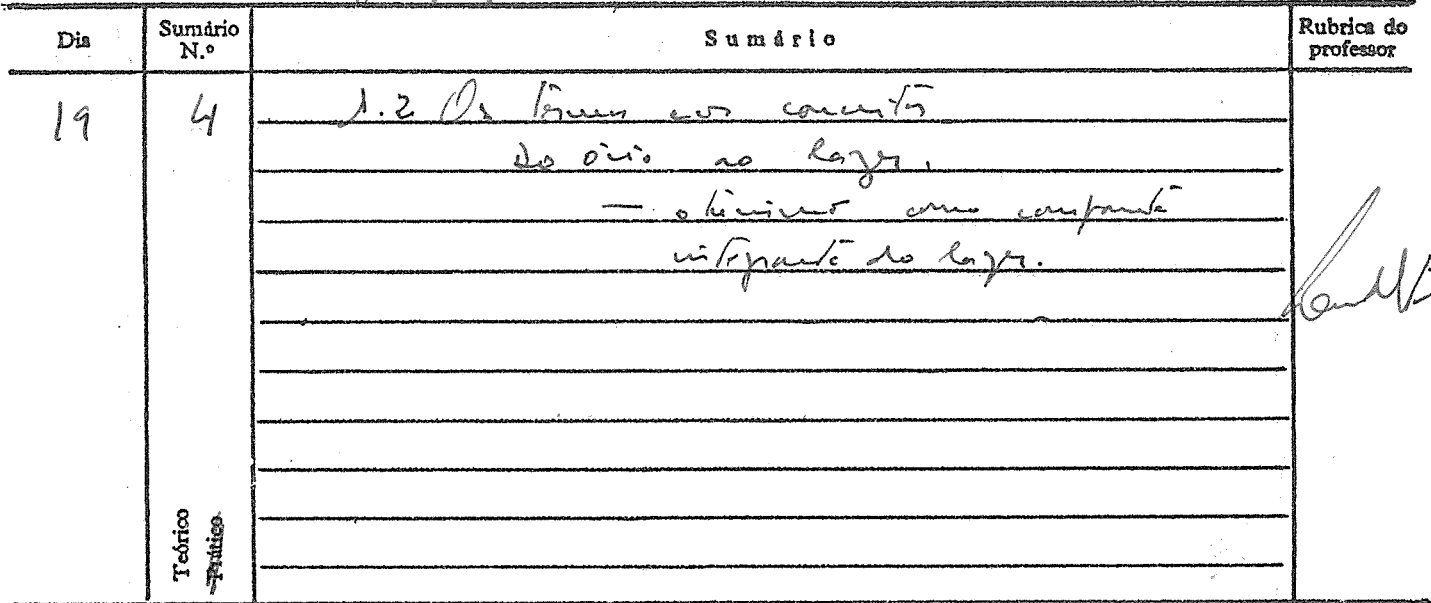 Dia Sumário N.º Sumário Rubrica do professor
19 4 1.2 Os termos e os conceitos
Do ócio ao lazer.
— o turismo como componente
integrante do lazer.
Teórico
Prático